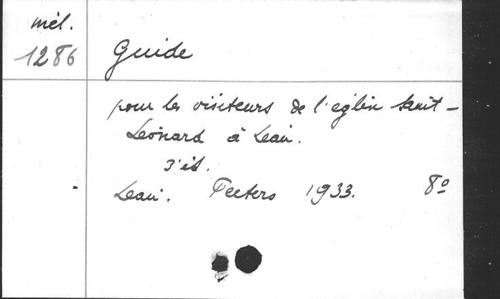 mél.
1286
Guide
pour les visiteurs de l'église Saint-
Léonard à Léau.
3e éd.
Léau. Peeters 1933. 8º